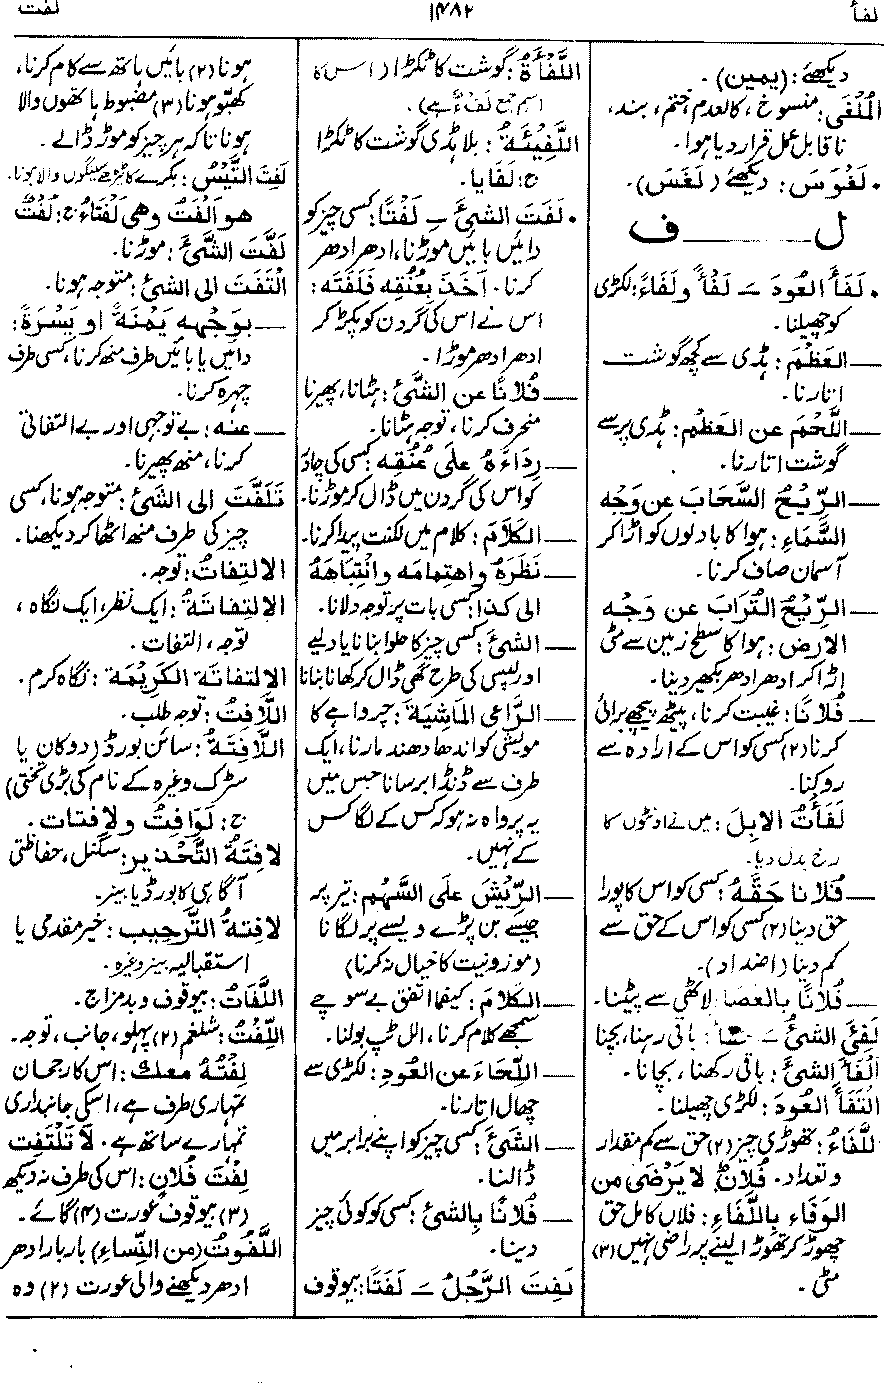 لفأ
۱۴۸۲
لفت
دیکھئے: (یمین)۔
المُلْغَی: منسوخ، کالعدم، ختم، بند،
ناقابل عمل قرار دیا ہوا۔
• لَغُوَسَ: دیکھئے (لَغَسَ)۔
ل ــــــ ف
• لَفَأَ العُودَ ــَـ لَفْأً ولَفَاءً: لکڑی
کو چھیلنا۔
ــــ العَظْمَ: ہڈی سے کچھ گوشت
اتارنا۔
ــــ اللَّحْمَ عن العَظْمِ: ہڈی پر سے
گوشت اتارنا۔
ــــ الرِّيْحُ السَّحَابَ عن وَجْه
السَّمَاءِ: ہوا کا بادلوں کو اڑا کر
آسمان صاف کرنا۔
ــــ الرِّيْحُ التُرَابَ عن وَجْه
الارضِ: ہوا کا سطح زمین سے مٹی
اڑا کر ادھر ادھر بکھیر دینا۔
ــــ فُلَانًا: غیبت کرنا، پیٹھ پیچھے برائی
کرنا (۲) کسی کو اس کے ارادہ سے
روکنا۔
لَفَأتُ الابِلَ: میں نے اونٹوں کا
رخ بدل دیا۔
ــــ فُلَانا حَقَّهُ: کسی کو اس کا پورا
حق دینا (۲) کسی کو اس کے حق سے
کم دینا (اضداد)۔
ــــ فُلَانًا بالعَصَا: لاٹھی سے پیٹنا۔
لَفِئَ الشیُٔ ــَـ : باقی رہنا، بچنا
الْفَأَ الشیَٔ: باقی رکھنا، بچانا۔
الْتَفَأَ العُودَ: لکڑی چھیلنا۔
للَّفَاءُ: تھوڑی چیز (۲) حق سے کم مقدار
و تعداد۔ فُلَانٌ لَا يَرْضَى من
الوَفَاءِ بِاللَّفَاءِ: فلاں کامل حق
چھوڑ کر تھوڑا لینے پر راضی نہیں (۳)
مٹی۔
اللَّفْأَةُ: گوشت کا ٹکڑا (اس کا
اسم جمع لَفْءٌ ہے)۔
اللَّفِيْئَةُ: بلا ہڈی گوشت کا ٹکڑا
ج: لَفَایا۔
• لَفَتَ الشیَٔ ــِـ لَفْتًا: کسی چیز کو
دائیں بائیں موڑنا، ادھر ادھر
کرنا۔ اَخَذَ بِعُنُقِه فَلَفَتَه:
اس نے اس کی گردن کو پکڑ کر
ادھر ادھر موڑا۔
ــــ فُلَانًا عن الشَّیٔ: ہٹانا، پھیرنا
منحرف کرنا، توجہ ہٹانا۔
ــــ رِدَاءَهُ علی عُنُقِه: کسی کی چادر
کو اس کی گردن میں ڈال کر موڑنا۔
ــــ الکَلَامَ: کلام میں لکنت پیدا کرنا۔
ــــ نَظَرَهُ واهتِمامَه وانْتِبَاهَهُ
الی کذا: کسی بات پر توجہ دلانا۔
ــــ الشیَٔ: کسی چیز کا حلوا بنانا یا دلیے
اور لپسی کی طرح گھی ڈال کر کھانا بنانا
ــــ الرَّاعِی المَاشِيَةَ: چرواہے کا
مویشی کو اندھا دھند مارنا، ایک
طرف سے ڈنڈا برسانا جس میں
یہ پرواہ نہ ہو کہ کس کے لگا کس
کے نہیں۔
ــــ الرِّيْشَ علی السَّهْمِ: تیر پر
جیسے بن پڑے ویسے پر لگانا
(موزونیت کا خیال نہ کرنا)
ــــ الکلامَ: کیفما اتفق بے سوچے
سمجھے کلام کرنا، الل ٹپ بولنا۔
ــــ اللِّحَاءَ عن العُودِ: لکڑی سے
چھال اتارنا۔
ــــ الشیَٔ: کسی چیز کو اپنے برابر میں
ڈالنا۔
ــــ فُلَانًا بالشیٔ: کسی کو کوئی چیز
دینا۔
لَفِتَ الرَّجُلُ ــَـ لَفَتًا: بیوقوف
ہونا (۲) بائیں ہاتھ سے کام کرنا،
کھبّو ہونا (۳) مضبوط ہاتھوں والا
ہونا تاکہ ہر چیز کو موڑ ڈالے۔
لَفِتَ التَّيْسُ: بکرے کا ٹیڑھے سینگوں والا ہونا۔
هو اَلْفَتُ وهی لَفْتَاءُ ج: لُفْتٌ
لَفَّتَ الشَّیَٔ: موڑنا۔
الْتَفَتَ الی الشیٔ: متوجہ ہونا۔
ــــ بِوَجْهِه يَمْنَةً او يَسْرَةً:
دائیں یا بائیں طرف منھ کرنا، کسی طرف
چہرہ کرنا۔
ــــ عنه: بے توجہی اور بے التفاتی
کرنا، منھ پھیرنا۔
تَلَفَّتَ الی الشَّیٔ: متوجہ ہونا، کسی
چیز کی طرف منھ اٹھا کر دیکھنا۔
الالتِفاتُ: توجہ۔
الالتِفاتَةُ: ایک نظر، ایک نگاہ،
توجہ، التفات۔
الالتفاتَة الکَرِيْمَة: نگاہ کرم۔
اللَّافِتُ: توجہ طلب۔
اللَّافِتَةُ: سائن بورڈ (دوکان یا
سڑک وغیرہ کے نام کی بڑی تختی)
ج: لَوَافِتُ ولافِتات۔
لافِتَةُ التَّحْذِيرِ: سگنل، حفاظتی
آگاہی کا بورڈ یا بینر۔
لافِتةُ التَّرحِيب: خیر مقدمی یا
استقبالیہ بینر وغیرہ۔
اللَّفَاتُ: بیوقوف و بدمزاج۔
اللِّفْتُ: شلغم (۲) پہلو، جانب، توجہ۔
لِفْتُهُ معكَ: اس کا رجحان
تمہاری طرف ہے، اسکی جانبداری
تمہارے ساتھ ہے۔ لَا تَلْتَفِت
لِفْتَ فُلانٍ: اس کی طرف نہ دیکھ
(۳) بیوقوف عورت (۴) گائے۔
اللَّفُوتُ (من النِّساءِ) بار بار ادھر
ادھر دیکھنے والی عورت (۲) وہ